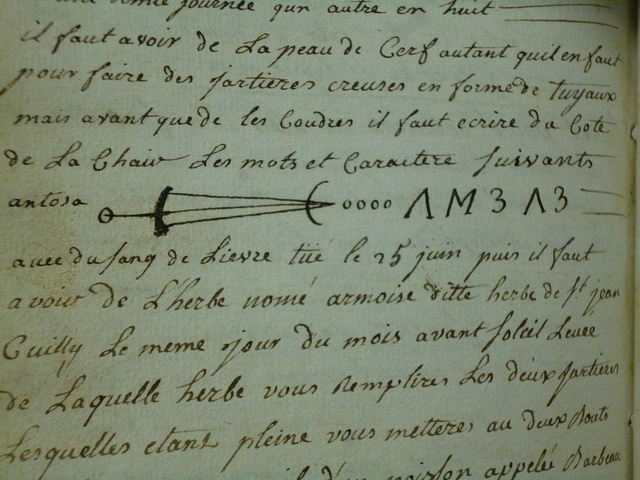 demie journée qun autre en huit
il faut avoir de La peau de Cerf autant quil en faut
pour faire des jartieres creuses en forme de tuyaux
mais avant que de les Coudres il faut ecrire du Cote
de La Chair Les mots et Caractere suivants
antosa oooo Λ M 3 Λ 3
avec du sang de Lievre tué le 25 juin puis il faut
avoir de L'herbe nomé armoise ditte herbe de st jean
Cuilly Le meme jour du mois avant soleil Levee
de Laquelle herbe vous Remplires Les deux jartieres
Lesquelles etant pleine vous metteres au deux Bouts
poisson appelée Barbeau